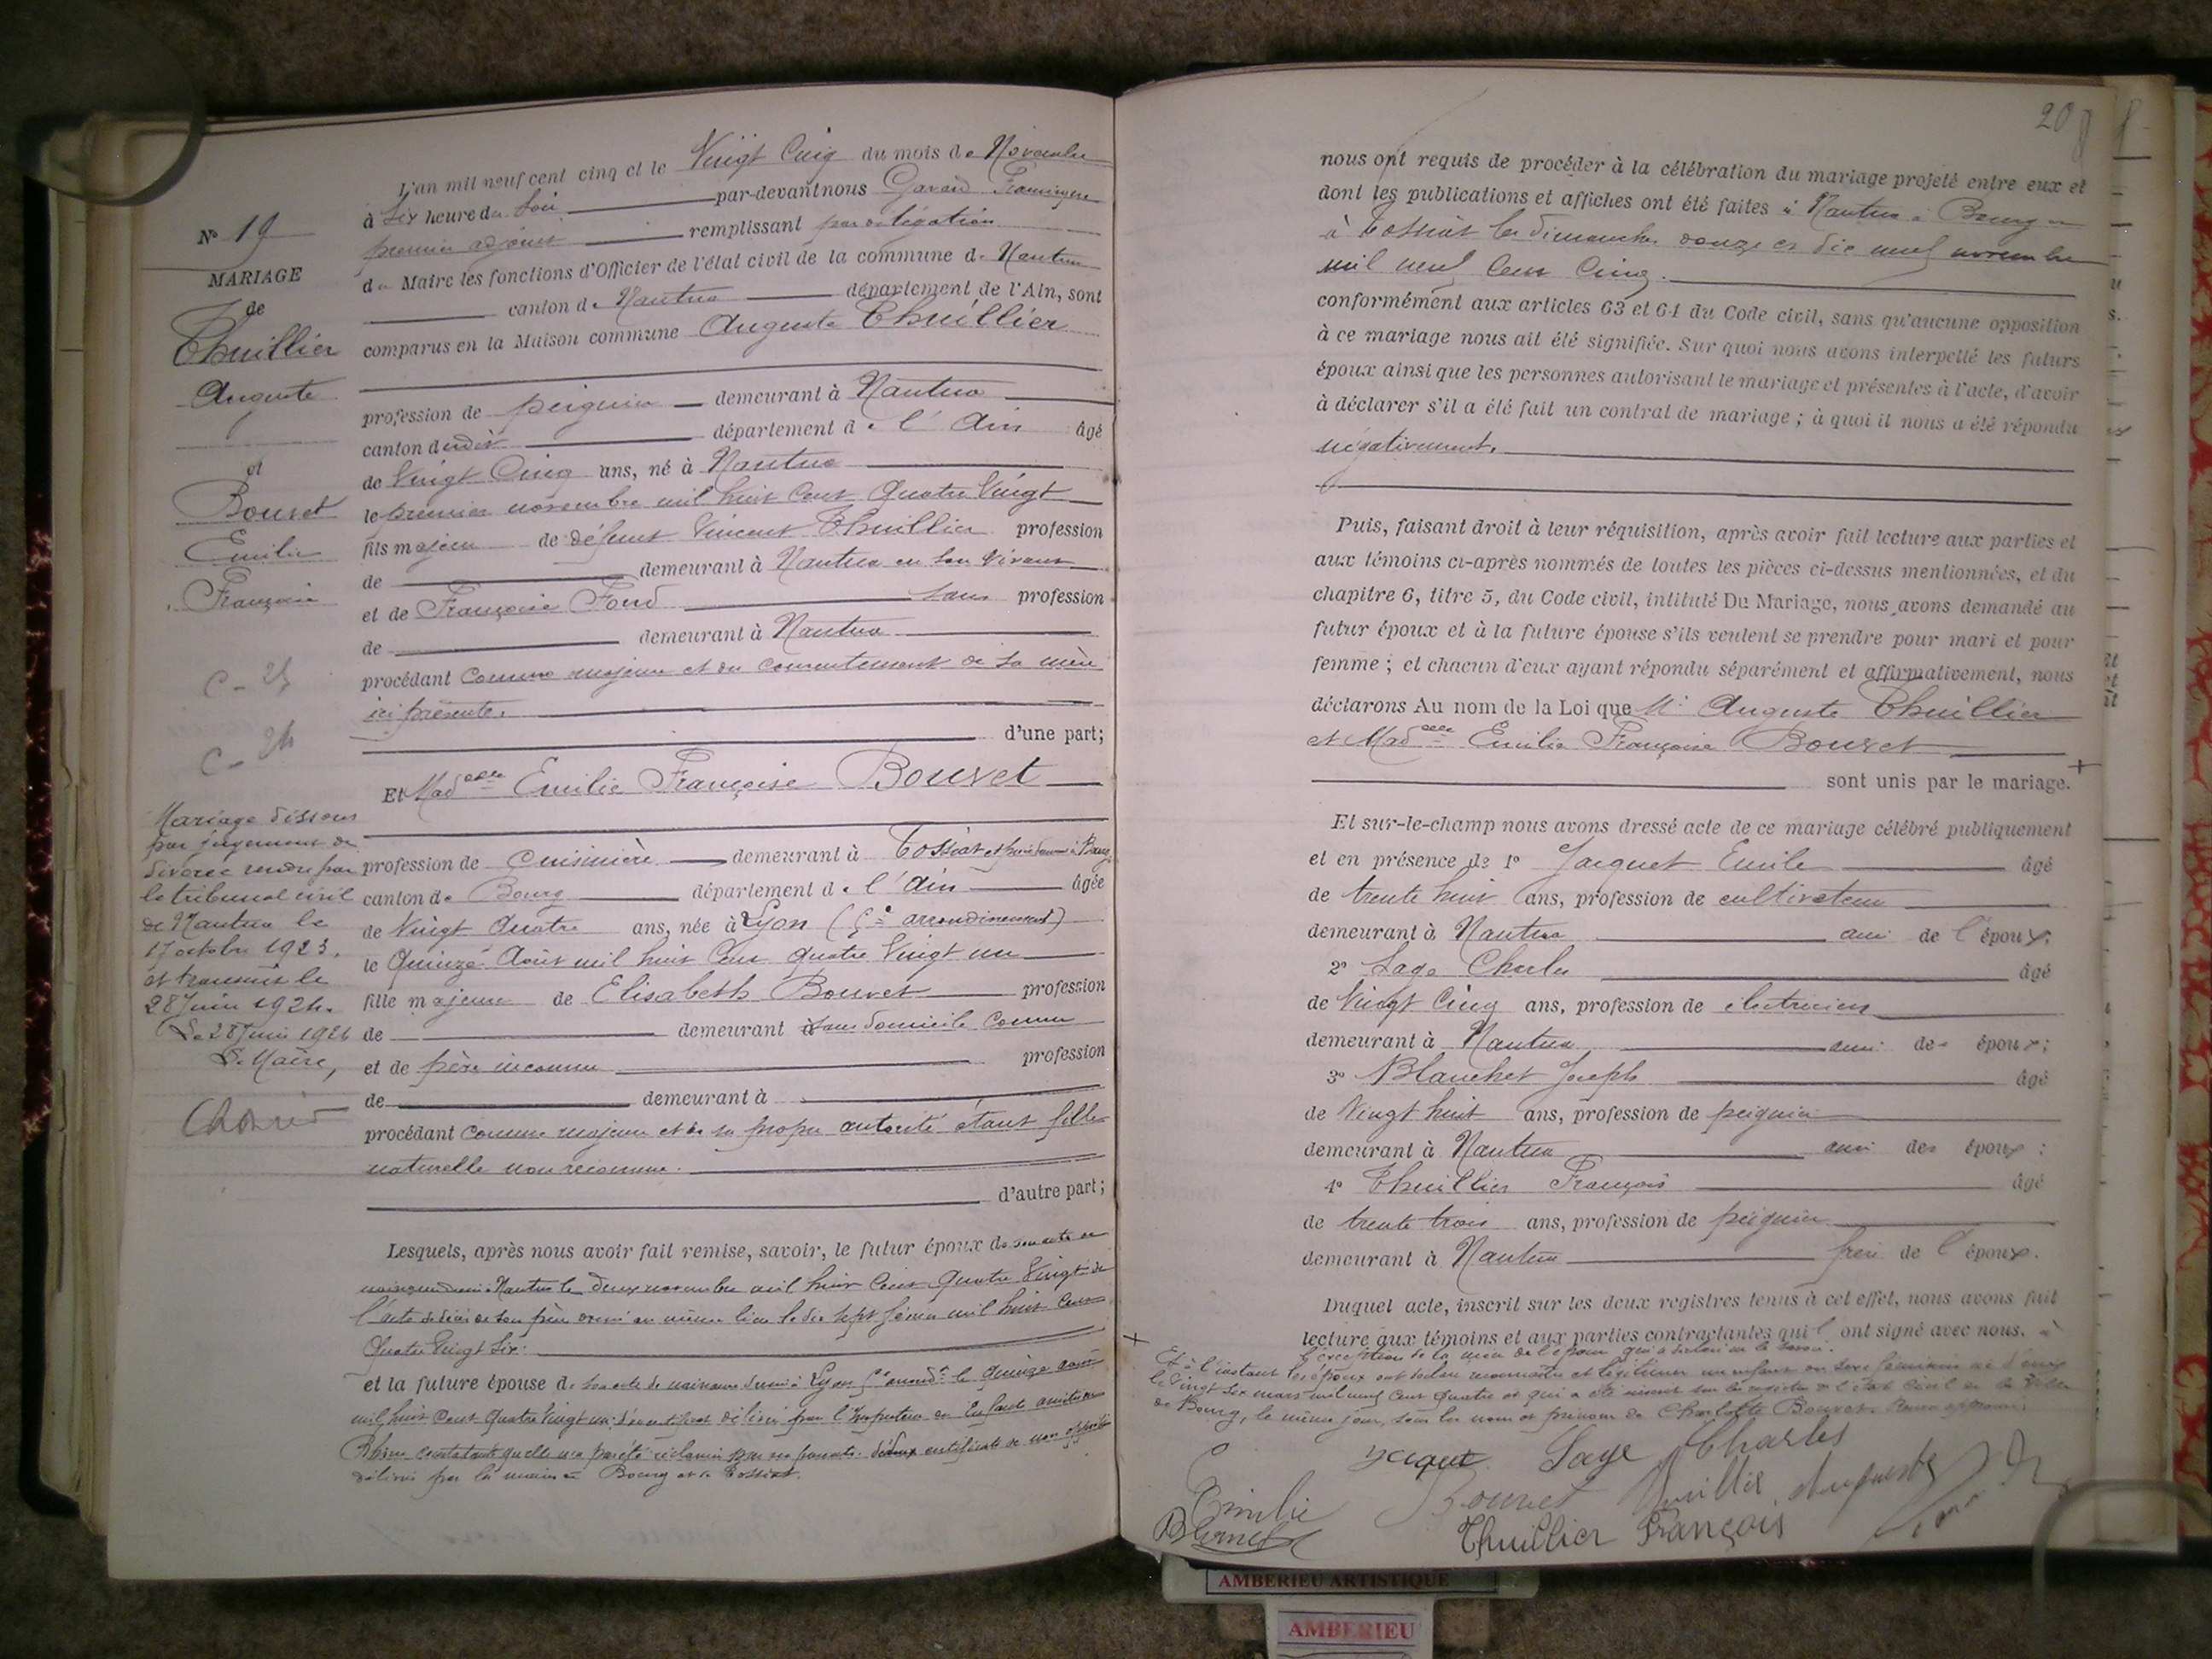 N° 19
MARIAGE
de
Thuillier
Auguste
et
Bouvet
Emilie
Françoise
C - 25
C - 24
Mariage dissous
par jugement de
divorce rendu par
le tribunal civil
de Nantua le
17 octobre 1923.
et transcrit le
28 Juin 1924.
Le 28 Juin 1924
Le Maire,
L'an mil neuf cent cinq et le Vingt Cinq du mois de Novembre
à Six heure du Soir par-devant nous
premier adjoint remplissant par délégation
du Maire les fonctions d'Officier de l'état civil de la commune de Nantua
canton de Nantua département de l'Ain, sont
comparus en la Maison commune Auguste Thuillier
profession de peignier demeurant à Nantua
canton dudit département de l'Ain âgé
de Vingt Cinq ans, né à Nantua
le premier novembre mil huit Cent Quatre Vingt
fils majeur de défunt Vincent Thuillier profession
de demeurant à Nantua en son vivant
et de Françoise Fond sans profession
de demeurant à Nantua
procédant comme majeur et du consentement de sa mère
ici présente.
d'une part;
Et Madelle Emilie Françoise Bouvet
profession de Cuisinière demeurant à Tossiat et
canton de Bourg département de l'Ain âgée
de Vingt Quatre ans, née à Lyon ( arrondissement)
le Quinze Août mil huit Cent quatre Vingt un
fille majeure de Elisabeth Bouvet profession
de demeurant sans domicile connu
et de père inconnu profession
de demeurant à
procédant comme majeure et de sa propre autorité étant fille
naturelle non reconnue.
d'autre part;
Lesquels, après nous avoir fait remise, savoir, le futur époux de son acte de
naissance Nantua le deux novembre mil huit Cent Quatre Vingt de
l'acte de décès de son père au même lieu le dix sept février mil huit Cent
Quatre Vingt Six.
et la future épouse de son acte de naissance Lyon le quinze août
mil huit Cent Quatre Vingt un délivré par l'Inspecteur
Rhône constatant quelle n'a pas été réclamée par ses parents. certificats de non opposition
délivrés par les maires de Bourg et de Tossiat.
20
nous ont requis de procéder à la célébration du mariage projeté entre eux et
dont les publications et affiches ont été faites à Nantua à Bourg et
à Tossiat les dimanches douze et dix neuf novembre
mil neuf Cent Cinq.
conformément aux articles 63 et 64 du Code civil, sans qu'aucune opposition
à ce mariage nous ait été signifiée. Sur quoi nous avons interpellé les futurs
époux ainsi que les personnes autorisant le mariage et présentes à l'acte, d'avoir
à déclarer s'il a été fait un contrat de mariage ; à quoi il nous a été répondu
négativement.
Puis, faisant droit à leur réquisition, après avoir fait lecture aux parties et
aux témoins ci-après nommés de toutes les pièces ci-dessus mentionnées, et du
chapitre 6, titre 5, du Code civil, intitulé Du Mariage, nous avons demandé au
futur époux et à la future épouse s'ils veulent se prendre pour mari et pour
femme ; et chacun d'eux ayant répondu séparément et affirmativement, nous
déclarons Au nom de la Loi que Mr Auguste Thuillier
et Madelle Emilie Françoise Bouvet
sont unis par le mariage. +
Et sur-le-champ nous avons dressé acte de ce mariage célébré publiquement
et en présence de 1° Jacquet Emile âgé
de trente huit ans, profession de cultivateur
demeurant à Nantua ami de l'époux;
2° Sage Charles âgé
de Vingt Cinq ans, profession de électricien
demeurant à Nantua ami des époux;
3° Blanchet Joseph âgé
de Vingt huit ans, profession de peignier
demeurant à Nantua ami des époux ;
4° Thuillier François âgé
de trente trois ans, profession de peignier
demeurant à Nantua frère de l'époux.
Duquel acte, inscrit sur les deux registres tenus à cet effet, nous avons fait
lecture aux témoins et aux parties contractantes qui l'ont signé avec nous. à
l'exception de la mère de l'époux qui a déclaré ne le savoir.
+ Et à l'instant les époux ont déclaré reconnaître et légitimer un enfant du sexe féminin né d'eux
le vingt six mars mil neuf Cent quatre et qui a été inscrit sur les registres de l'état Civil de la Ville
de Bourg, le même jour, sous les nom et prénom de Charlotte Bouvet.
Jacquet Sage Charles
Emilie Bouvet Thuillier Auguste
Thuillier François
AMBERIEU ARTISTIQUE
AMBERIEU